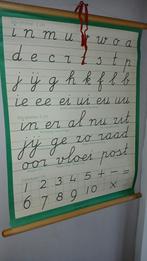 i n m u w o a
d e c r s t p
j ij g h k f l b
ie ee ei ui eu uu
in er al nu zit
jij ge zo raad
oor vloei post
1 2 3 4 5 + - =
6 7 8 9 10 x